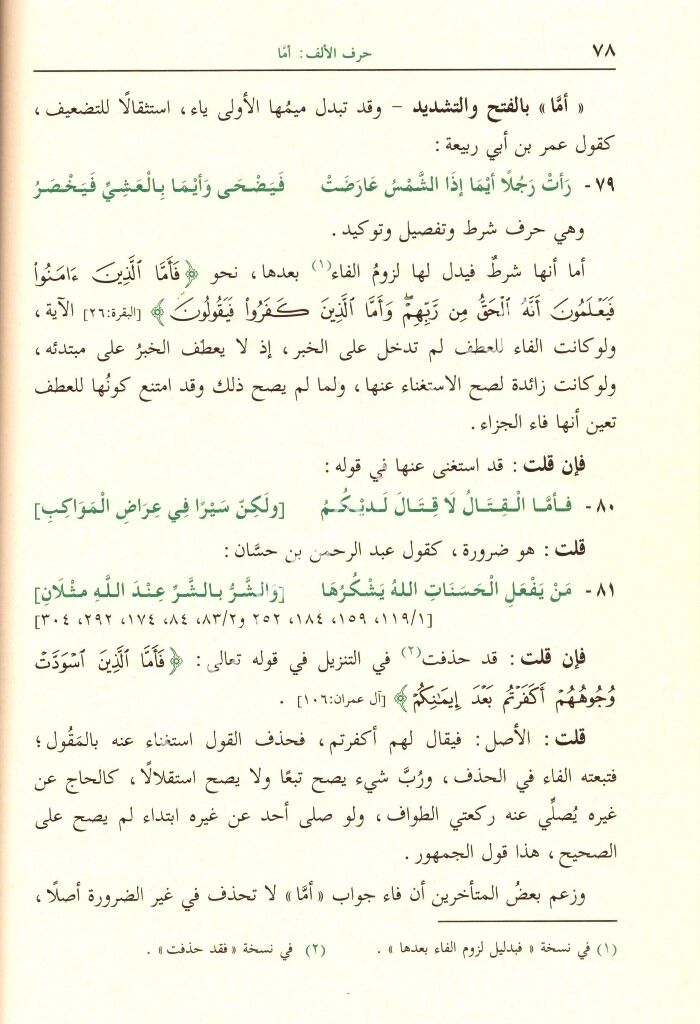 ٧٨ حرف الألف: أمَّا
« أمَّا » بالفتح والتشديد – وقد تبدل ميمُها الأولى ياء، استثقالًا للتضعيف،
كقول عمر بن أبي ربيعة:
٧٩- رَأتْ رَجُلًا أيْمَا إذَا الشَّمْسُ عَارَضَتْ فَيَضْحَى وَأيْمَا بِالْعَشِيِّ فَيَخْصَرُ
وهي حرف شرط وتفصيل وتوكيد.
أما أنها شرطٌ فيدل لها لزومُ الفاء(١) بعدها، نحو ﴿فَأَمَّا ٱلَّذِينَ ءَامَنُوا۟
فَيَعْلَمُونَ أَنَّهُ ٱلْحَقُّ مِن رَّبِّهِمْ ۖ وَأَمَّا ٱلَّذِينَ كَفَرُوا۟ فَيَقُولُونَ﴾ [البقرة:٢٦] الآية،
ولو كانت الفاء للعطف لم تدخل على الخبر، إذ لا يعطف الخبرُ على مبتدئه،
ولو كانت زائدة لصح الاستغناء عنها، ولما لم يصح ذلك وقد امتنع كونُها للعطف
تعين أنها فاء الجزاء.
فإن قلت: قد استغنى عنها في قوله:
٨٠- فـأمَّـا الْـقِـتَـالُ لَا قِـتَـالَ لَـديْـكُـمُ [ولَكِنّ سَيْرًا فِي عِرَاضِ الْمَوَاكِبِ]
قلت: هو ضرورة، كقول عبد الرحمن بن حسَّان:
٨١- مَنْ يَفْعَلِ الْحَسَنَاتِ اللهُ يَشْكُرُهَا [وَالشَّرُّ بـالشَّـرِّ عِنْـدَ اللَّـهِ مثْـلَانِ]
[١١٩/١، ١٥٩، ١٨٤، ٢٥٢ و٨٣/٢، ٨٤، ١٧٤، ٢٩٢، ٣٠٤]
فإن قلت: قد حذفت(٢) في التنزيل في قوله تعالى: ﴿فَأَمَّا ٱلَّذِينَ ٱسْوَدَّتْ
وُجُوهُهُمْ أَكَفَرْتُم بَعْدَ إِيمَٰنِكُمْ﴾ [آل عمران:١٠٦].
قلت: الأصل: فيقال لهم أكفرتم، فحذف القول استغناء عنه بالمَقُول؛
فتبعته الفاء في الحذف، ورُبَّ شيء يصح تبعًا ولا يصح استقلالًا، كالحاج عن
غيره يُصلِّي عنه ركعتي الطواف، ولو صلى أحد عن غيره ابتداء لم يصح على
الصحيح، هذا قول الجمهور.
وزعم بعضُ المتأخرين أن فاء جواب «أمَّا» لا تحذف في غير الضرورة أصلًا،
(١) في نسخة « فبدليل لزوم الفاء بعدها ». (٢) في نسخة «فقد حذفت».